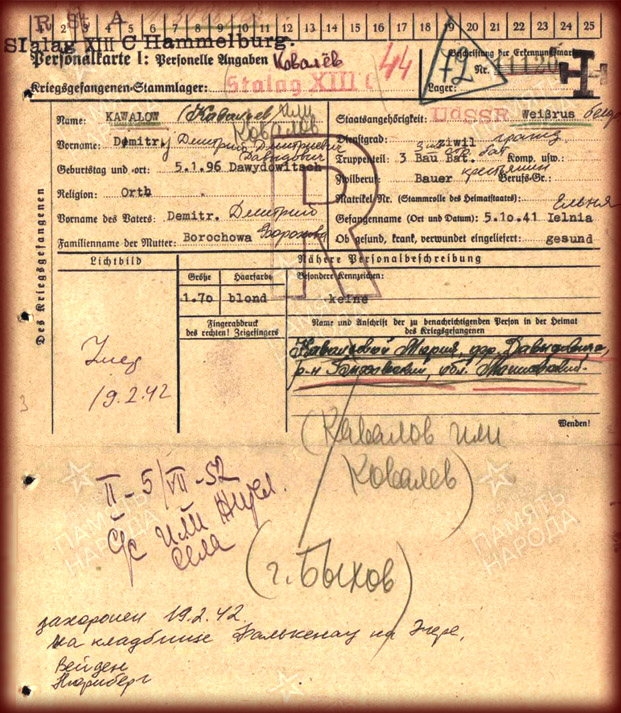 R St A
1 2 3 4 5 6 7 8 9 10 11 12 13 14 15 16 17 18 19 20 21 22 23 24 25
Stalag XIII C Hammelburg.
Personalkarte I: Personelle Angaben Ковалёв
44
72
Beschriftung der Erkennungsmarke
Nr.
Lager:
Kriegsgefangenen-Stammlager: Stalag XIII C
Des Kriegsgefangenen
Name: KAWALOW (Ковалев или
Ковалов
Vorname: Dmitrij Дмитрий Дмитриевич
Давидович
Geburtstag und -ort: 5.1.96 Dawydowitsch
Religion: Orth
Vorname des Vaters: Demitr. Дмитрий
Familienname der Mutter: Borochowa Борохова
Staatsangehörigkeit: UdSSR Weißrus
Dienstgrad: ziwil гражд
Truppenteil: 3 Bau Bat. Komp. usw.:
Zivilberuf: Bauer крестьянин Berufs-Gr.:
Matrikel Nr. (Stammrolle des Heimatstaates):
Ельня
Gefangenname (Ort und Datum): 5.10.41 Ielnia
Ob gesund, krank, verwundet eingeliefert: gesund
R
Lichtbild
Nähere Personalbeschreibung
Größe Haarfarbe Besondere Kennzeichen:
1.70 blond keine
Fingerabdruck
des rechten! Zeigefingers
Name und Anschrift der zu benachrichtigenden Person in der Heimat
des Kriegsgefangenen
Мария, дер. Давыдовичи,
р-н обл.
Wenden!
Умер
19.2.42
3
(Кавалов или
Ковалев)
II-5/VII-52
с/с или
села
(г. Быхов)
захоронен 19.2.42
на кладбище Фалькенау на Эгере,
Вейден
Нюрнберг
ПАМЯТЬ
НАРОДА
ПАМЯТЬ
НАРОДА